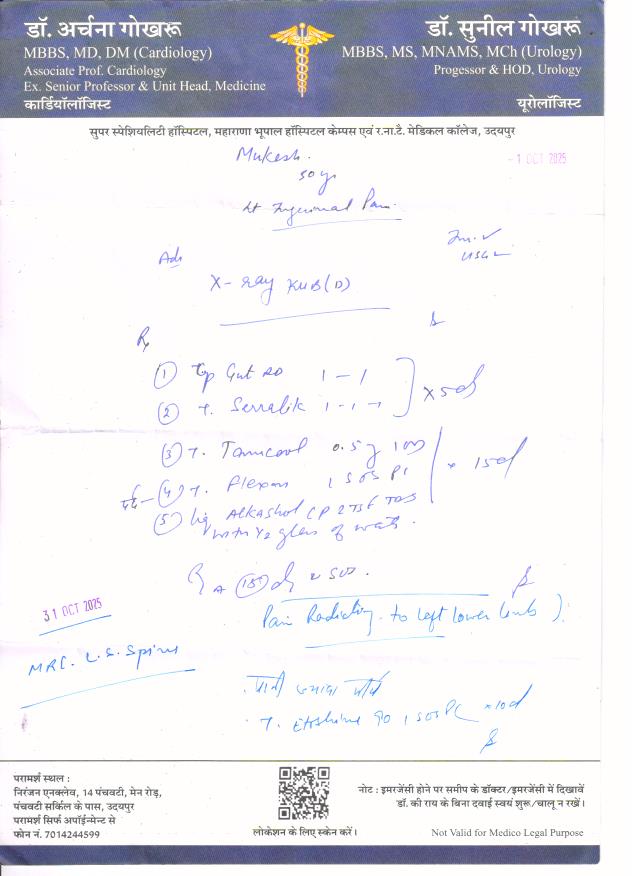 डॉ. अर्चना गोखरू
MBBS, MD, DM (Cardiology)
Associate Prof. Cardiology
Ex. Senior Professor & Unit Head, Medicine
कार्डियॉलॉजिस्ट
डॉ. सुनील गोखरू
MBBS, MS, MNAMS, MCh (Urology)
Progessor & HOD, Urology
यूरोलॉजिस्ट
सुपर स्पेशियलिटी हॉस्पिटल, महाराणा भूपाल हॉस्पिटल केम्पस एवं र.ना.टै. मेडिकल कॉलेज, उदयपुर
Mukesh.
- 1 OCT 2025
50 yr
Lt Inguinal Pain.
Adv
USG
X-ray KUB (D)
Rx
① Cap Gut 1 - 1
② T. Serralik 1 - 1 - x 5d
③ T. 0.5 g
④ T. Flexon 1 SOS PC x 15d
⑤ Liq Alkashol 2 TSF TDS
with 1/2 glass of water.
15 d
31 OCT 2025
Pain Radiating to left lower limb).
MRI. L.S. Spine
पानी ज्यादा पीये
T. 90 1 SOS PC x 10d
परामर्श स्थल :
निरंजन एनक्लेव, 14 पंचवटी, मेन रोड़,
पंचवटी सर्किल के पास, उदयपुर
परामर्श सिर्फ अपॉईन्मेन्ट से
फोन नं. 7014244599
लोकेशन के लिए स्केन करें।
नोट : इमरजेंसी होने पर समीप के डॉक्टर/इमरजेंसी में दिखावें
डॉ. की राय के बिना दवाई स्वयं शुरू/चालू न रखें।
Not Valid for Medico Legal Purpose